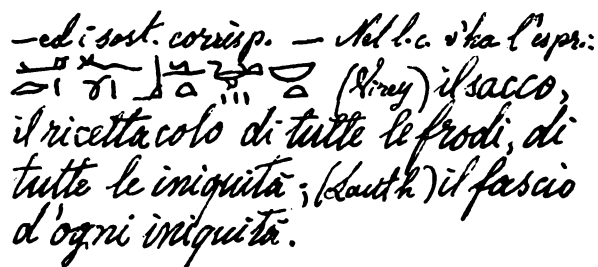 — ed i sost. corrisp. — Nel l. c. v'ha l'espr.:
(Virey) il sacco,
il ricettacolo di tutte le frodi, di
tutte le iniquità; (Lauth) il fascio
d'ogni iniquità.